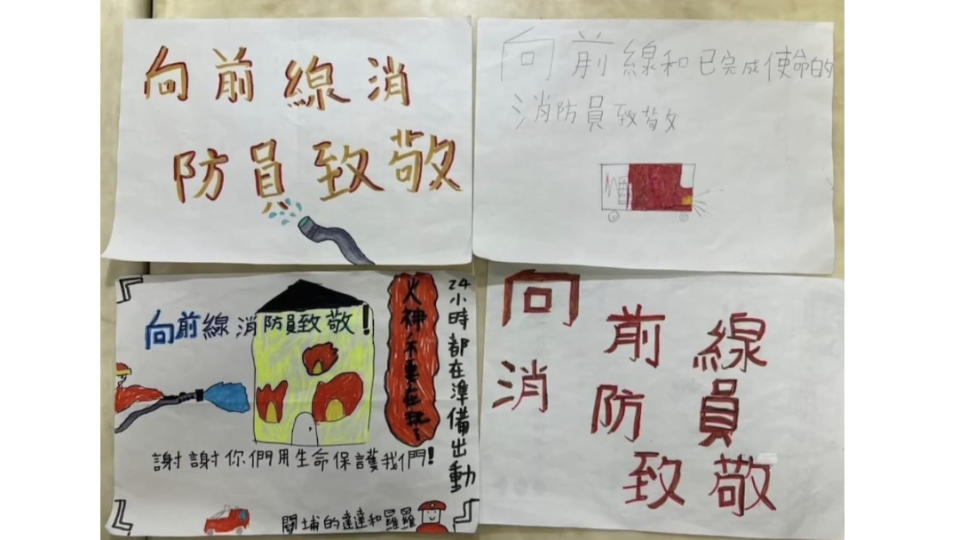 向前線消
防員致敬
向前線和已完成使命的
消防員致敬
向前線消防員致敬!
火神不要在玩了
24小時都在準備出動
謝謝你們用生命保護我們!
關埔的達達和羅羅
向前線
消防員
致敬